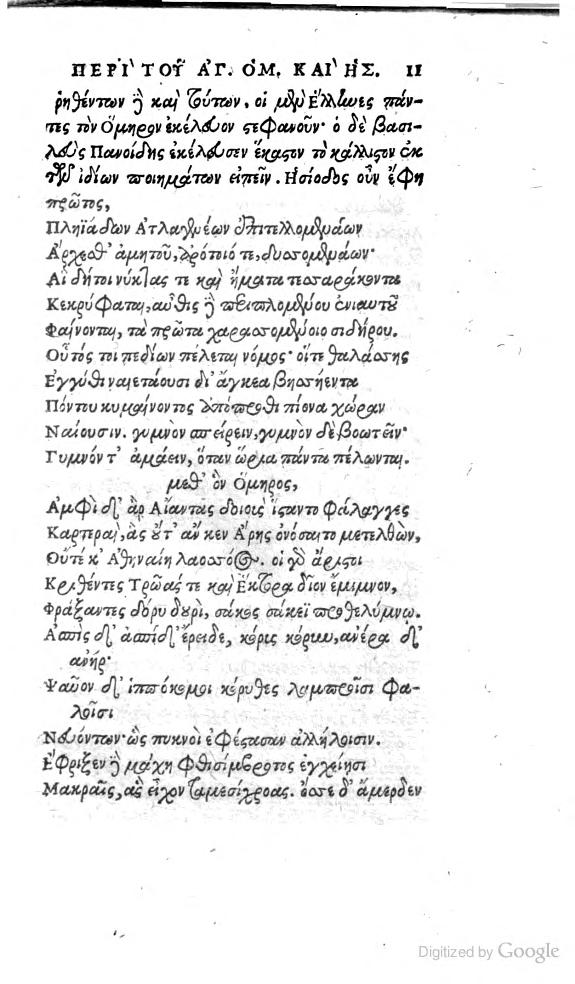 ΠΕΡΙ ΤΟΥ ΑΓ. ΟΜ. ΚΑΙ ΗΣ. 11
ῥηθέντων ἢ καὶ τούτων, οἱ μὲν Ἕλληνες πάν-
τες τὸν Ὅμηρον ἐκέλευον στεφανοῦν· ὁ δὲ βασι-
λεὺς Πανοίδης ἐκέλευσεν ἕκαστον τὸ κάλλιστον ἐκ
τῶν ἰδίων ποιημάτων εἰπεῖν. Ἡσίοδος οὖν ἔφη
πρῶτος,
Πληϊάδων Ἀτλαγενέων ἐπιτελλομενάων
Ἄρχεσθ' ἀμητοῦ, ἀρότοιό τε, δυσομενάων·
Αἳ δή τοι νύκτας τε καὶ ἤματα τεσσαράκοντα
Κεκρύφαται, αὖθις ἢ περιπλομένου ἐνιαυτοῦ
Φαίνονται, τὰ πρῶτα χαρασσομένοιο σιδήρου.
Οὗτός τοι πεδίων πέλεται νόμος· οἵτε θαλάσσης
Ἐγγύθι ναιετάουσι δι' ἄγκεα βησσήεντα
Πόντου κυμαίνοντος ἀπόπροθι πίονα χώραν
Ναίουσιν. γυμνὸν σπείρειν, γυμνὸν δὲ βοωτεῖν·
Γυμνόν τ' ἀμάειν, ὅταν ὥρια πάντα πέλωνται.
μεθ' ὃν Ὅμηρος,
Ἀμφὶ δ' ἂρ Αἴαντας δοιοὺς ἵσταντο φάλαγγες
Καρτεραὶ, ἃς οὔτ' ἄν κεν Ἄρης ὀνόσαιτο μετελθὼν,
Οὔτέ κ' Ἀθηναίη λαοσσόος. οἱ γὰρ ἄριστοι
Κριθέντες Τρῶάς τε καὶ Ἕκτορα δῖον ἔμιμνον,
Φράξαντες δόρυ δουρὶ, σάκος σάκεϊ προθελύμνῳ.
Ἀσπὶς δ' ἀσπίδ' ἔρειδε, κόρις κόρυν, ἀνέρα δ'
ἀνήρ·
Ψαῦον δ' ἱππόκομοι κόρυθες λαμπροῖσι φα-
λοῖσι
Νευόντων· ὣς πυκνοὶ ἐφέστασαν ἀλλήλοισιν.
Ἔφριξεν ἢ μάχη φθισίμβροτος ἐγχείησι
Μακραῖς, ἃς εἶχον ταμεσίχροας. ὄσσε δ' ἄμερδεν
Digitized by Google